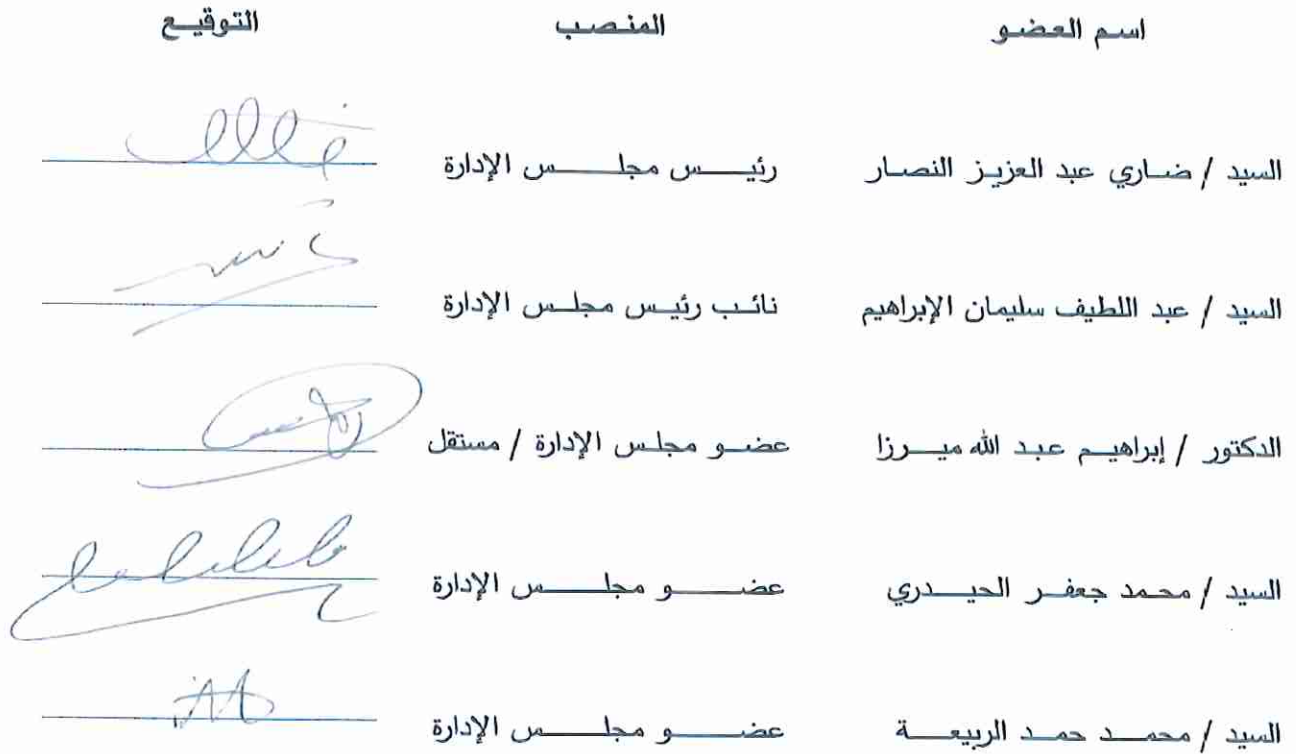 اسم العضو المنصب التوقيع
السيد / ضاري عبد العزيز النصار رئيس مجلس الإدارة
السيد / عبد اللطيف سليمان الإبراهيم نائب رئيس مجلس الإدارة
الدكتور / إبراهيم عبد الله ميرزا عضو مجلس الإدارة / مستقل
السيد / محمد جعفر الحيدري عضو مجلس الإدارة
السيد / محمد حمد الربيعة عضو مجلس الإدارة